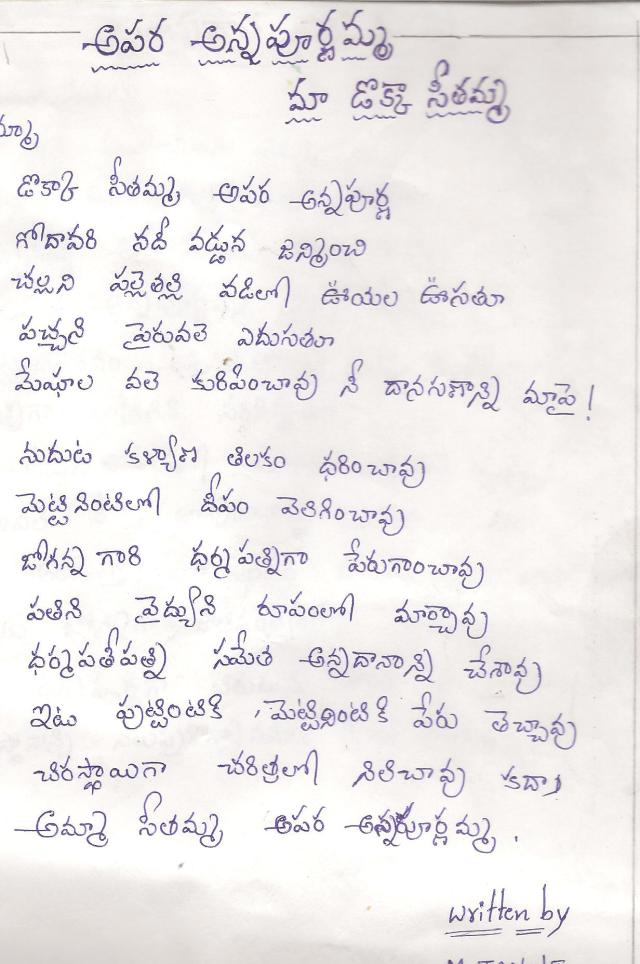 అపర అన్నపూర్ణమ్మ
మా డొక్కా సీతమ్మ
డొక్కా సీతమ్మ అపర అన్నపూర్ణ
గోదావరి నదీ వడ్డున జన్మించి
చల్లని పల్లెతల్లి వడిలో ఊయల ఊసతూ
పచ్చని పైరువలె ఎదుసతూ
మేఘాల వలె కురిపించావు నీ దానగుణాన్ని మాపై!
నుదుట కళ్యాణ తిలకం ధరించావు
మెట్టినింటిలో దీపం వెలిగించావు
జోగన్న గారి ధర్మపత్నిగా పేరుగాంచావు
పతిని వైద్యుని రూపంలో మార్చావు
ధర్మపతీపత్ని సమేత అన్నదానాన్ని చేశావు
ఇటు పుట్టింటికి, మెట్టినింటికి పేరు తెచ్చావు
చిరస్థాయిగా చరిత్రలో నిలిచావు కదా,
అమ్మా సీతమ్మ అపర అన్నపూర్ణమ్మ.
written by